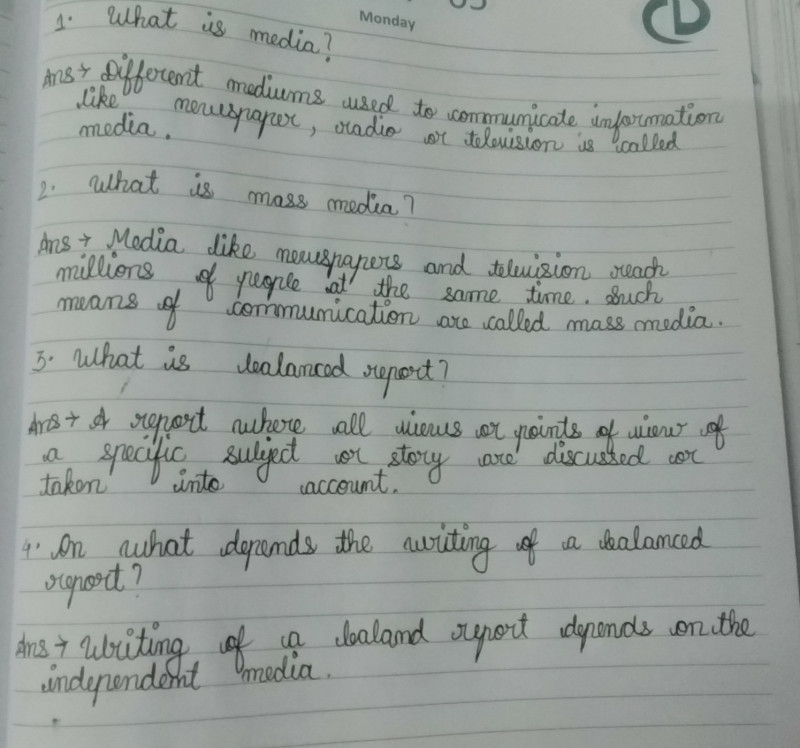 Monday
1. What is media?
Ans → Different mediums used to communicate information
like newspaper, radio or television is called
media.
2. What is mass media?
Ans → Media like newspapers and television reach
millions of people at the same time. Such
means of communication are called mass media.
3. What is balanced report?
Ans → A report where all views or points of view of
a specific subject or story are discussed or
taken into account.
4. On what depends the writing of a balanced
report?
Ans → Writing of a baland report depends on the
independent media.